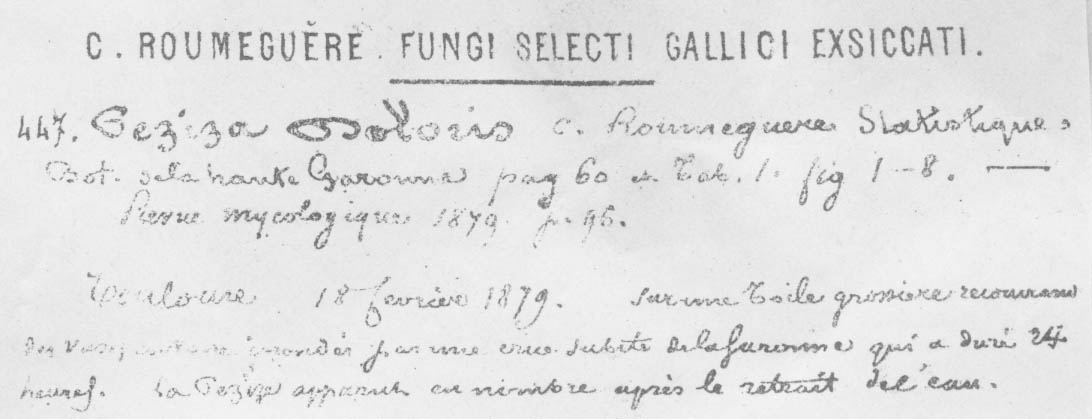 C. ROUMEGUÈRE. FUNGI SELECTI GALLICI EXSICCATI.
447. Peziza Doloris C. Roumeguere Statistique
Bot. de la haute Garonne pag 60 et Tab. 1. fig 1-8. —
Revue mycologique 1879. p. 96.
Toulouse 18 fevrier 1879. sur une Toile grossiere recouvrant
des inondés par une crue subite de la Garonne qui a duré 24
heures. La Pezize apparut en nombre après le retrait de l'eau.